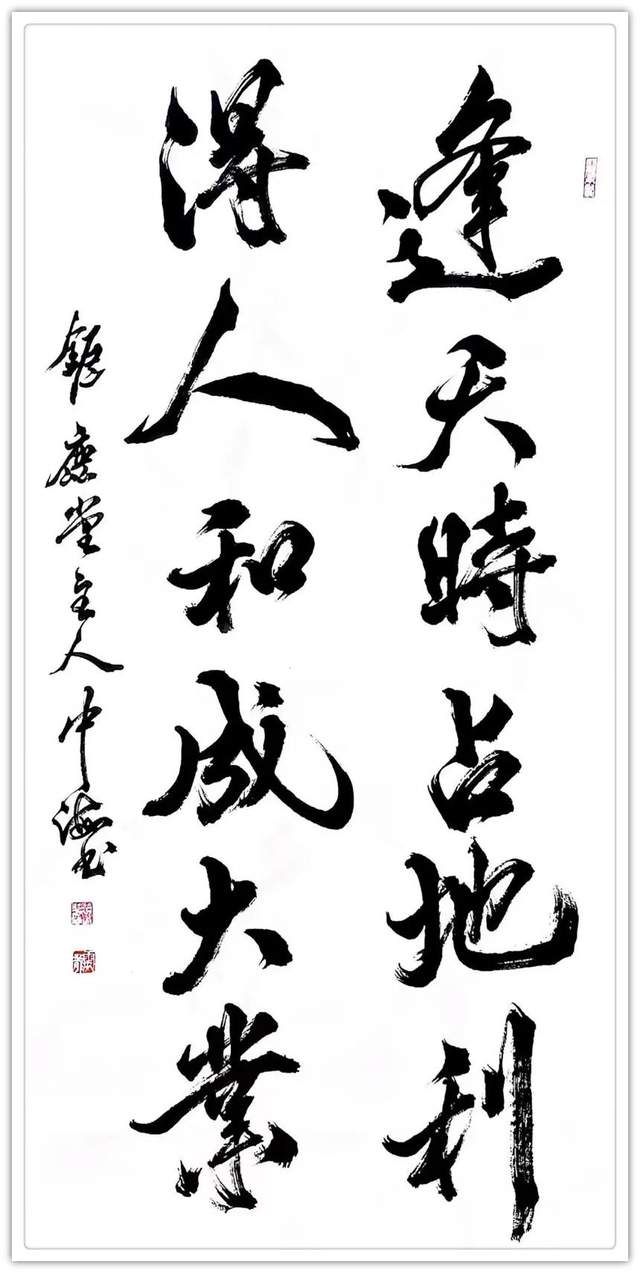 逢天時占地利
得人和成大業
應堂主人中海书